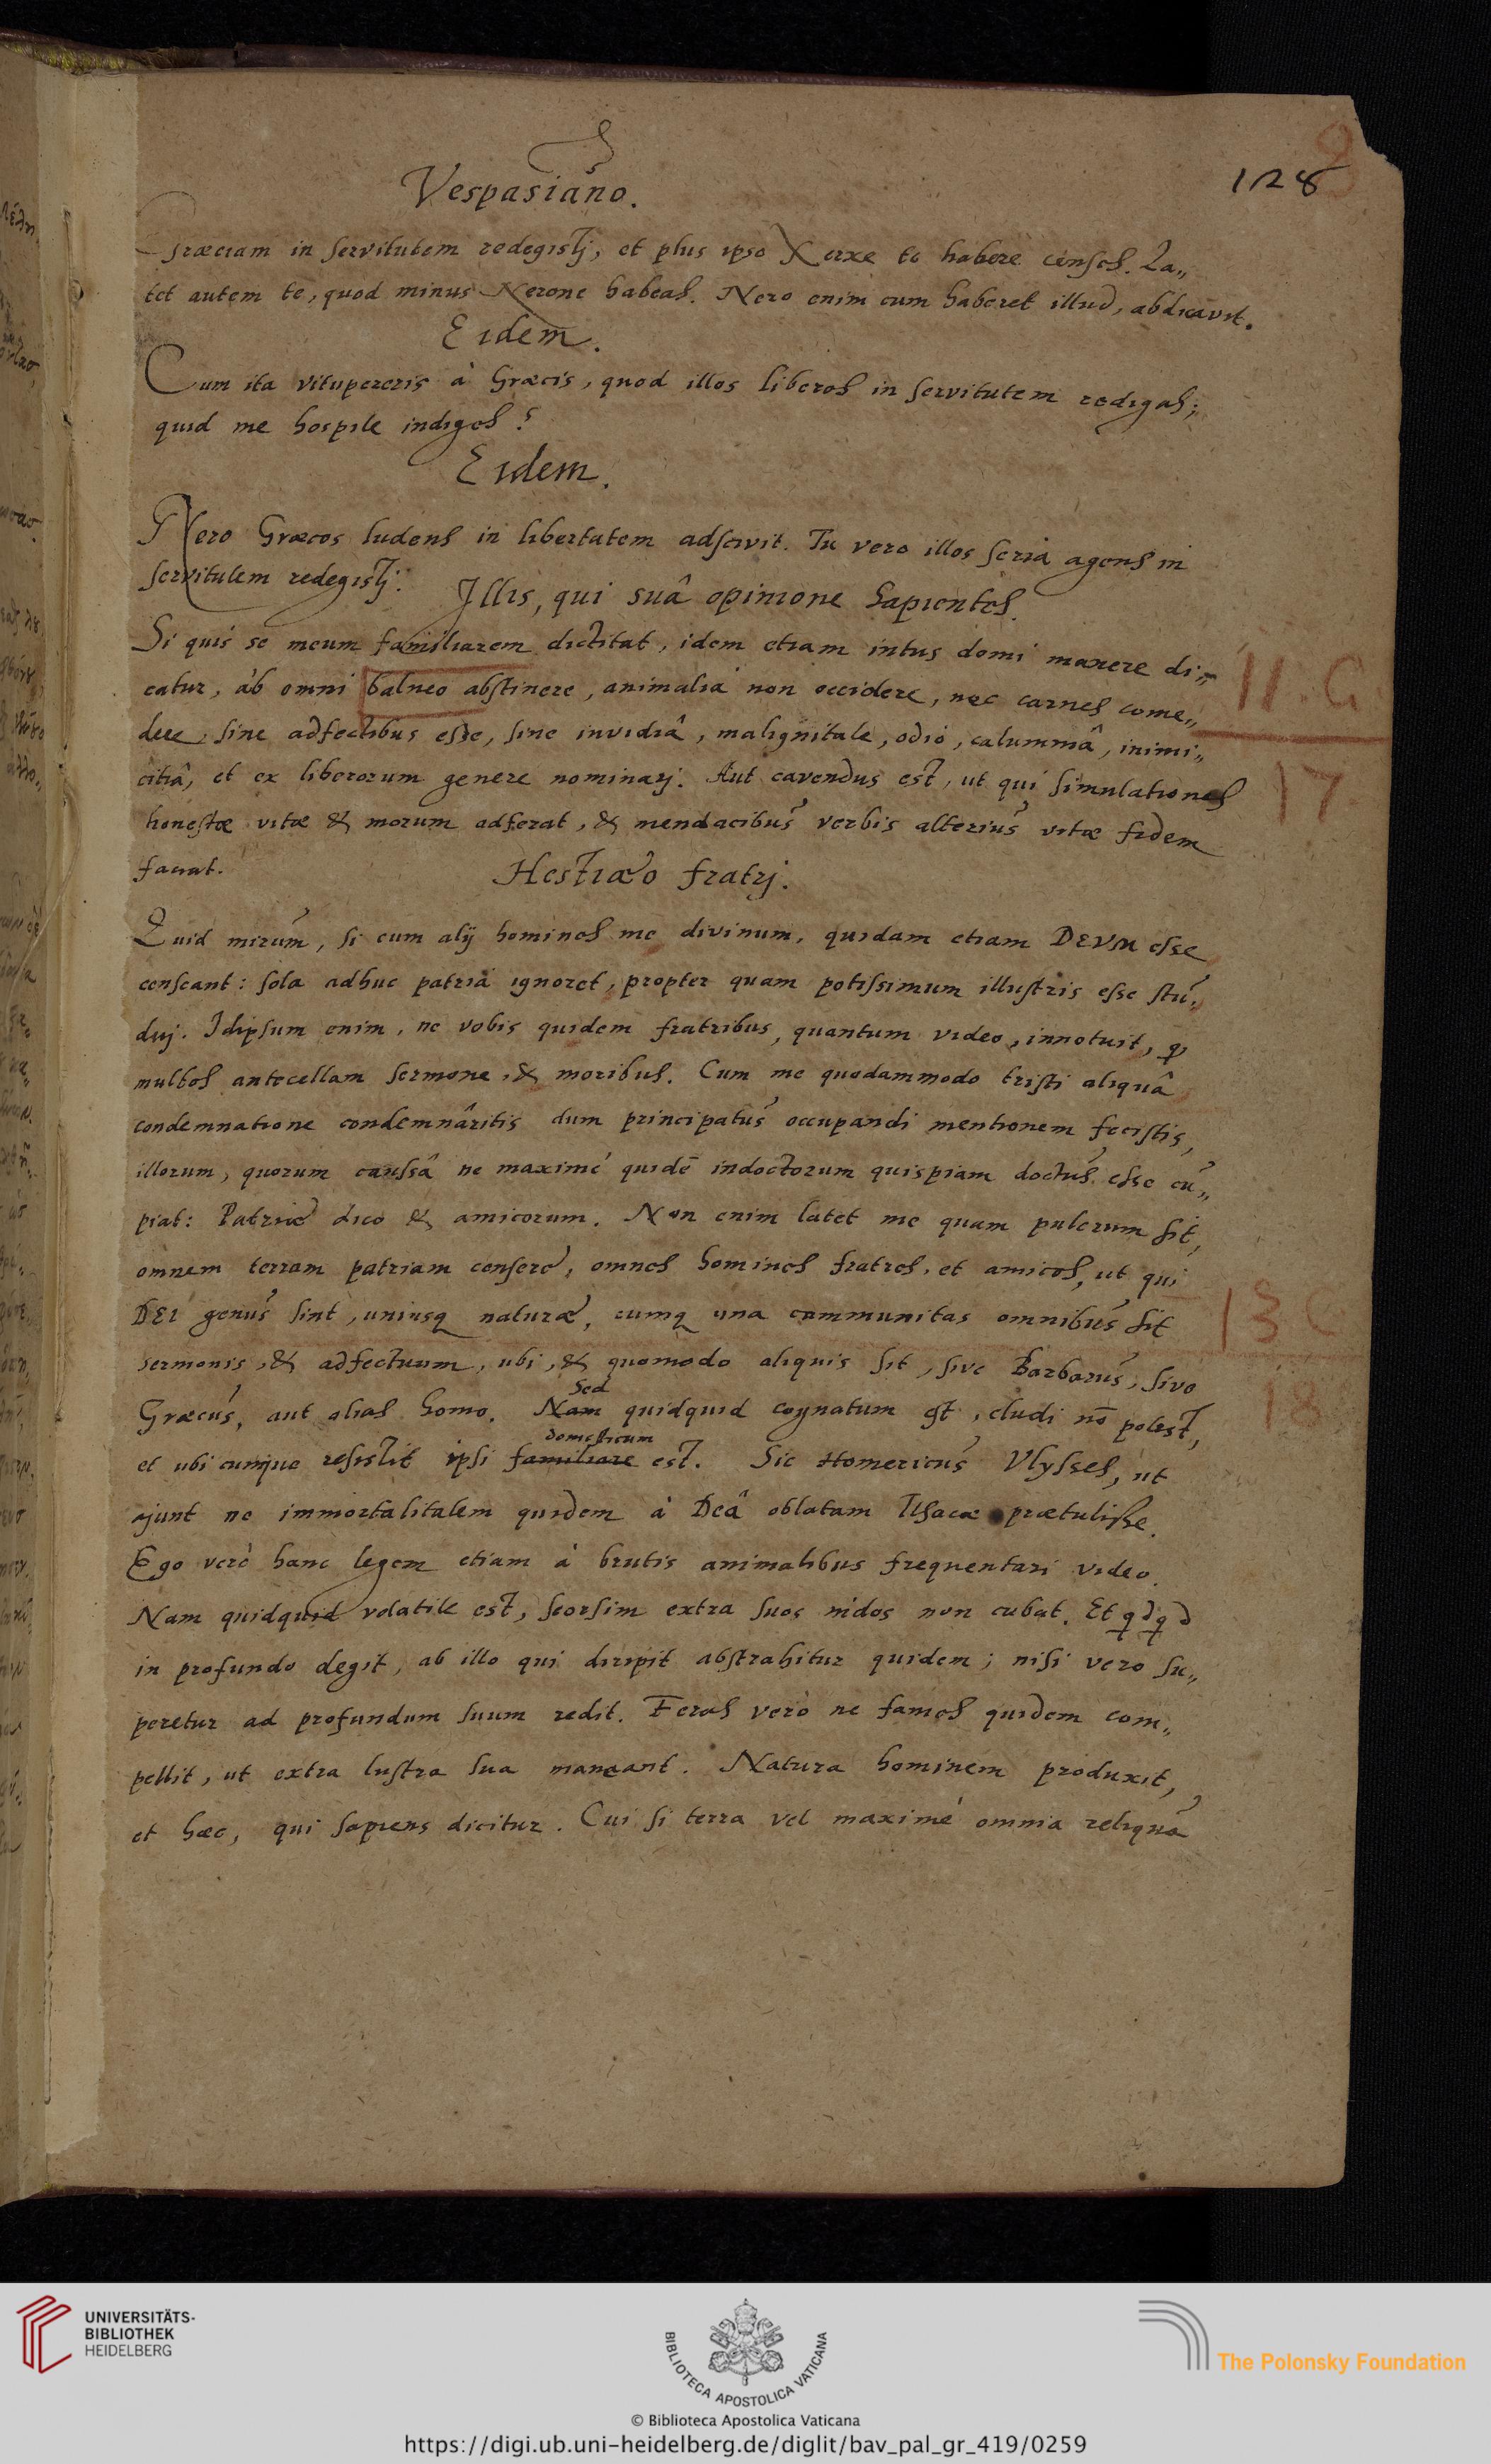 128
Vespasiano.
Græciam in servitutem redegistj, et plus ipso Xerxe te habere censes. La„
tet autem te, quod minus Nerone habeas. Nero enim cum haberet illud, abdicavit.
Eidem.
Cum ita vitupereris à Græcis, quod illos liberos in servitutem redigas;
quid me hospite indiges?
Eidem.
Nero Græcos ludens in libertatem adscivit. Tu vero illos seria agens in
servitutem redegistj.
Illis, qui suâ opinione Sapientes.
Si quis se meum familiarem dictitat, idem etiam intus domi manere di„
catur, ab omni balneo abstinere, animalia non occidere, nec carnes come„
dere, sine adfectibus esse, sine invidiâ, malignitate, odio, calumniâ, inimi„
citiâ, et ex liberorum genere nominarj. Aut cavendus est, ut qui simulationes
honestæ vitæ & morum adferat, & mendacibus verbis alterius vitæ fidem
faciat.
11. G
17
Hestiæo fratrj.
Quid mirum, si cum alij homines me divinum, quidam etiam DEUM esse
censeant: sola adhuc patria ignoret, propter quam potissimum illustris esse stu„
duj. Idipsum enim, ne vobis quidem fratribus, quantum video, innotuit, q
multos antecellam sermone, & moribus. Cum me quodammodo tristi aliquâ
condemnatione condemnâritis dum principatus occupandi mentionem fecistis,
illorum, quorum caussâ ne maximé quidē indoctorum quispiam doctus esse cu„
piat: Patriæ dico & amicorum. Non enim latet me quam pulcrum sit,
omnem terram patriam censere, omnes homines fratres, et amicos, ut qui
DEI genus sint, uniusq naturæ, cumq una communitas omnibus sit
sermonis, & adfectuum, ubi, & quomodo aliquis sit, sive Barbarus, sive
13 C
18
Sed
Græcus, aut alias homo. Nam quidquid cognatum est, cludi nō potest,
domesticum
et ubi cumque resistit ipsi familiare est. Sic Homericus Ulysses, ut
ajunt ne immortalitatem quidem à Deâ oblatam Ithacæ prætulisse.
Ego verò hanc legem etiam à brutis animalibus frequentari video.
Nam quidquid volatile est, seorsim extra suos nidos non cubat. Et qdqd
in profundo degit, ab illo qui diripit abstrahitur quidem; nisi vero su„
peretur ad profundum suum redit. Feras verò ne fames quidem com„
pellit, ut extra lustra sua maneant. Natura hominem produxit,
et hæc, qui sapiens dicitur. Cui si terra vel maximé omnia reliqua
UNIVERSITÄTS-
BIBLIOTHEK
HEIDELBERG
BIBLIOTECA APOSTOLICA VATICANA
The Polonsky Foundation
© Biblioteca Apostolica Vaticana
https://digi.ub.uni-heidelberg.de/diglit/bav_pal_gr_419/0259